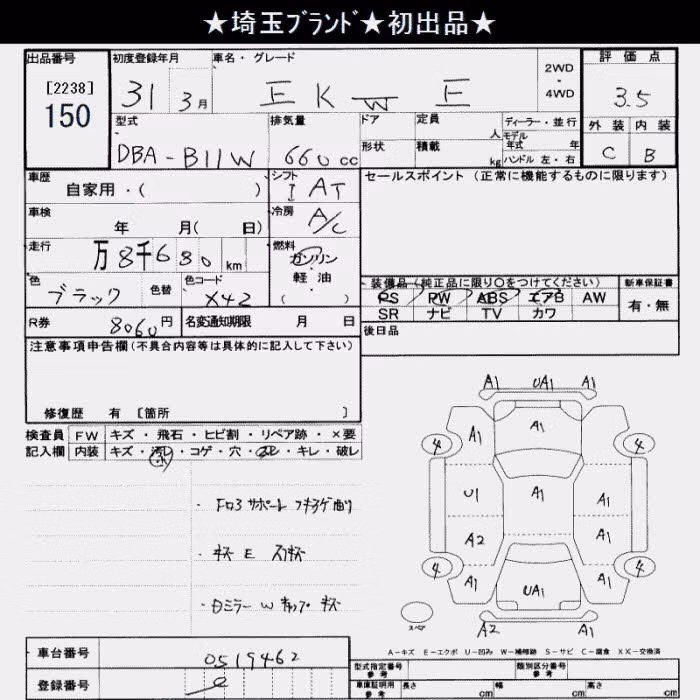 ★埼玉ﾌﾞﾗﾝﾄﾞ★初出品★
出品番号
[2238]
150
初度登録年月
31 3月
車名・グレード
EKW E
2WD
・
4WD
評価点
3.5
外装 内装
C B
型式
DBA-B11W
排気量
660cc
ドア
形状
定員 人
積載 kg
ディーラー・並行
モデル年式 年
ハンドル 左・右
車歴
自家用・( )
シフト
I AT
車検
年 月( 日)
冷房
A/C
走行
万8千680km
燃料
ガソリン
・
軽油
( )
色
ブラック
色替
色コード
X42
R券
8060円
名変通知期限 月 日
セールスポイント(正常に機能するものに限ります)
装備品(純正品に限り〇をつけてください)
PS PW ABS エアB AW
SR ナビ TV カワ
新車保証書
有・無
後日品
注意事項申告欄(不具合内容等は具体的に記入して下さい)
修復歴 有 [箇所 ]
検査員記入欄
FW キズ・飛石・ヒビ割・リペア跡・×要
内装 キズ・汚レ・コゲ・穴・・キレ・破レ
小
・キズ E 天キズ
・日ミラー W キャップ キズ
A1 UA1 A1
A1 A1
4 4
U1 A1 A1
A2 A1
4 4
A1 UA1 A1
A2 A1
スペア
A-キズ E-エクボ U-凹み W-補修跡 S-サビ C-腐食 XX-交換済
車台番号
0519462
登録番号
型式指定番号
参考
類別区分番号
参考
車庫証明用
参考
長さ cm
幅 cm
高さ cm